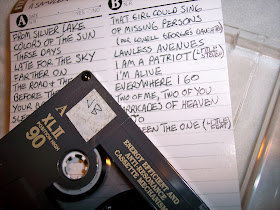 A
FROM SILVER LAKE
COLORS OF THE SUN
THESE DAYS
LATE FOR THE SKY
FARTHER ON
THE ROAD &
BEFORE TH
YOUR B
SLE
B
THAT GIRL COULD SING
OF MISSING PERSONS
(FOR LOWELL GEORGE'S
LAWLESS AVENUES
I AM A PATRIOT (LITTLE STEVEN)
I'M ALIVE
EVERYWHERE I GO
TWO OF ME, TWO OF YOU
BARRICADES OF HEAVEN
TO
EEN THE ONE (LITTLE FEAT)
A
XLII
90
POSITION HIGH
ENERGY EFFICIENT AND
ANTI-RESONANCE
CASSETTE MECHANISM